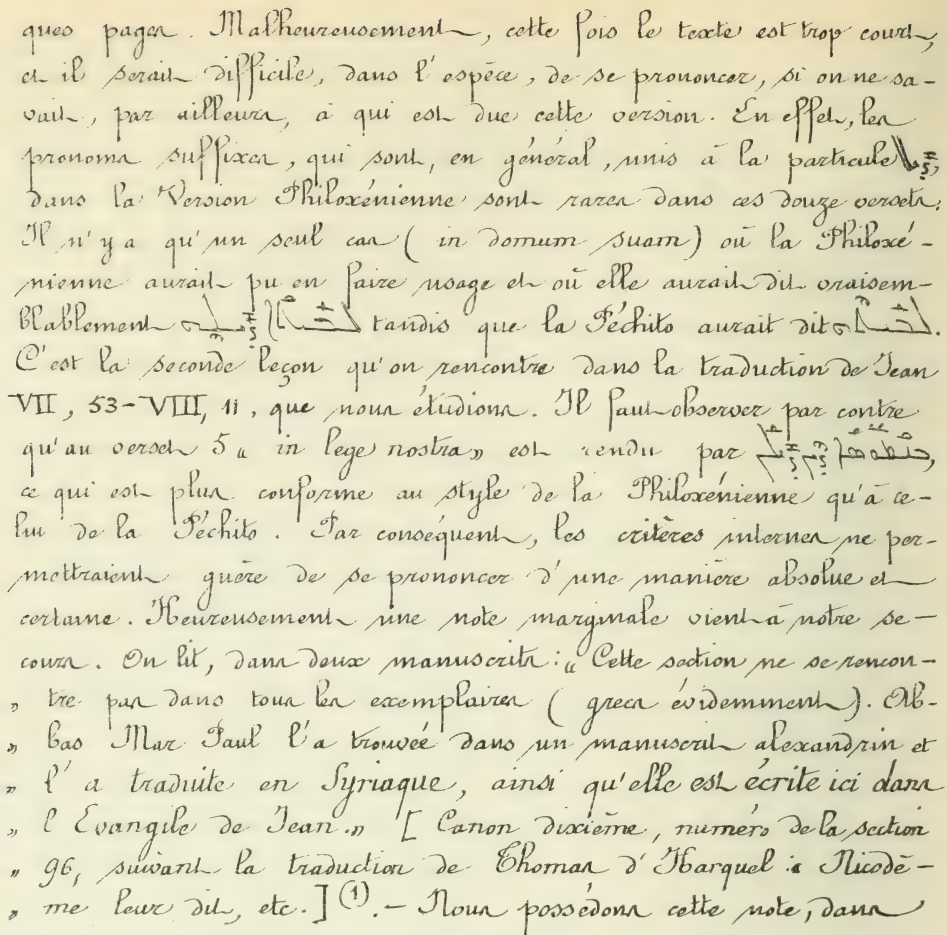 ques pages. Malheureusement, cette fois le texte est trop court,
et il serait difficile, dans l'espèce, de se prononcer, si on ne sa-
vait, par ailleurs, à qui est due cette version. En effet, les
pronoms suffixes, qui sont, en général, unis à la particule
dans la Version Philoxénienne sont rares dans ces douze versets.
Il n'y a qu'un seul cas ( in domum suam) où la Philoxé-
nienne aurait pu en faire usage et où elle aurait dit vraisem-
blablement tandis que la Péchito aurait dit
C'est la seconde leçon qu'on rencontre dans la traduction de Jean
VII, 53-VIII, 11, que nous étudions. Il faut observer par contre
qu'au verset 5 „ in lege nostra„ est rendu par
ce qui est plus conforme au style de la Philoxénienne qu'à ce-
lui de la Péchito. Par conséquent, les critères internes ne per-
mettraient guère de se prononcer d'une manière absolue et
certaine. Heureusement une note marginale vient à notre se-
cours. On lit, dans deux manuscrits: „ Cette section ne se rencon-
„ tre pas dans tous les exemplaires ( grecs évidemment). Ab-
„ bas Mar Paul l'a trouvée dans un manuscrit alexandrin et
„ l'a traduite en Syriaque, ainsi qu'elle est écrite ici dans
„ l'Evangile de Jean.„ [ Canon dixième, numéro de la section
„ 96, suivant la traduction de Thomas d'Harquel : Nicodè-
„ me leur dit, etc.] (1). - Nous possédons cette note, dans